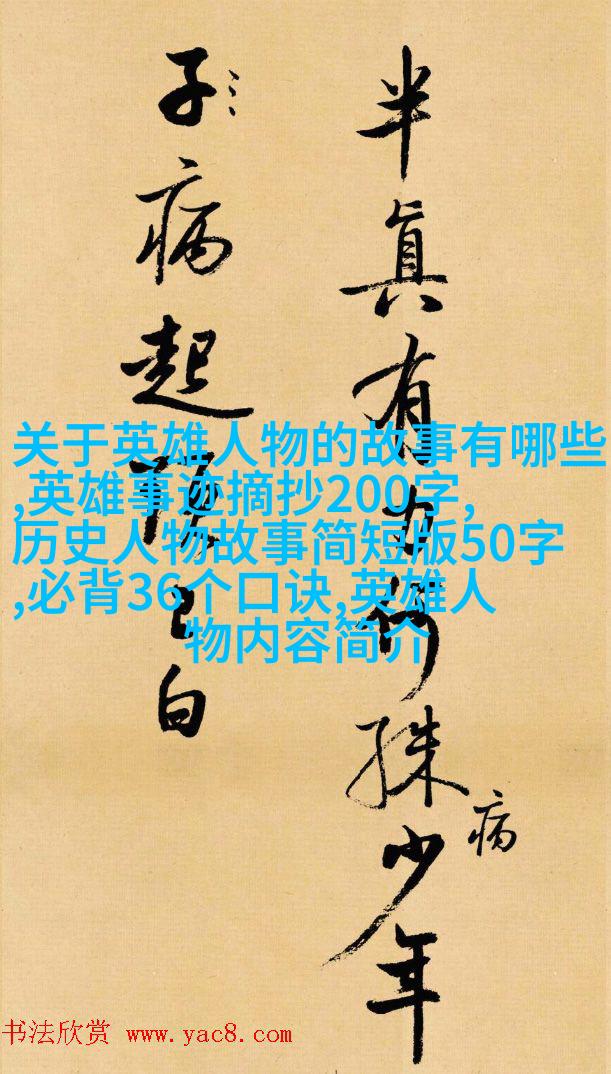 半真有何殊少年
病
子病起白
关于英雄人物的故事有哪些
,英雄事迹摘抄200字,
历史人物故事简短版50字
,必背36个口诀,英雄人
物内容简介
书法欣赏 www.yac8.com